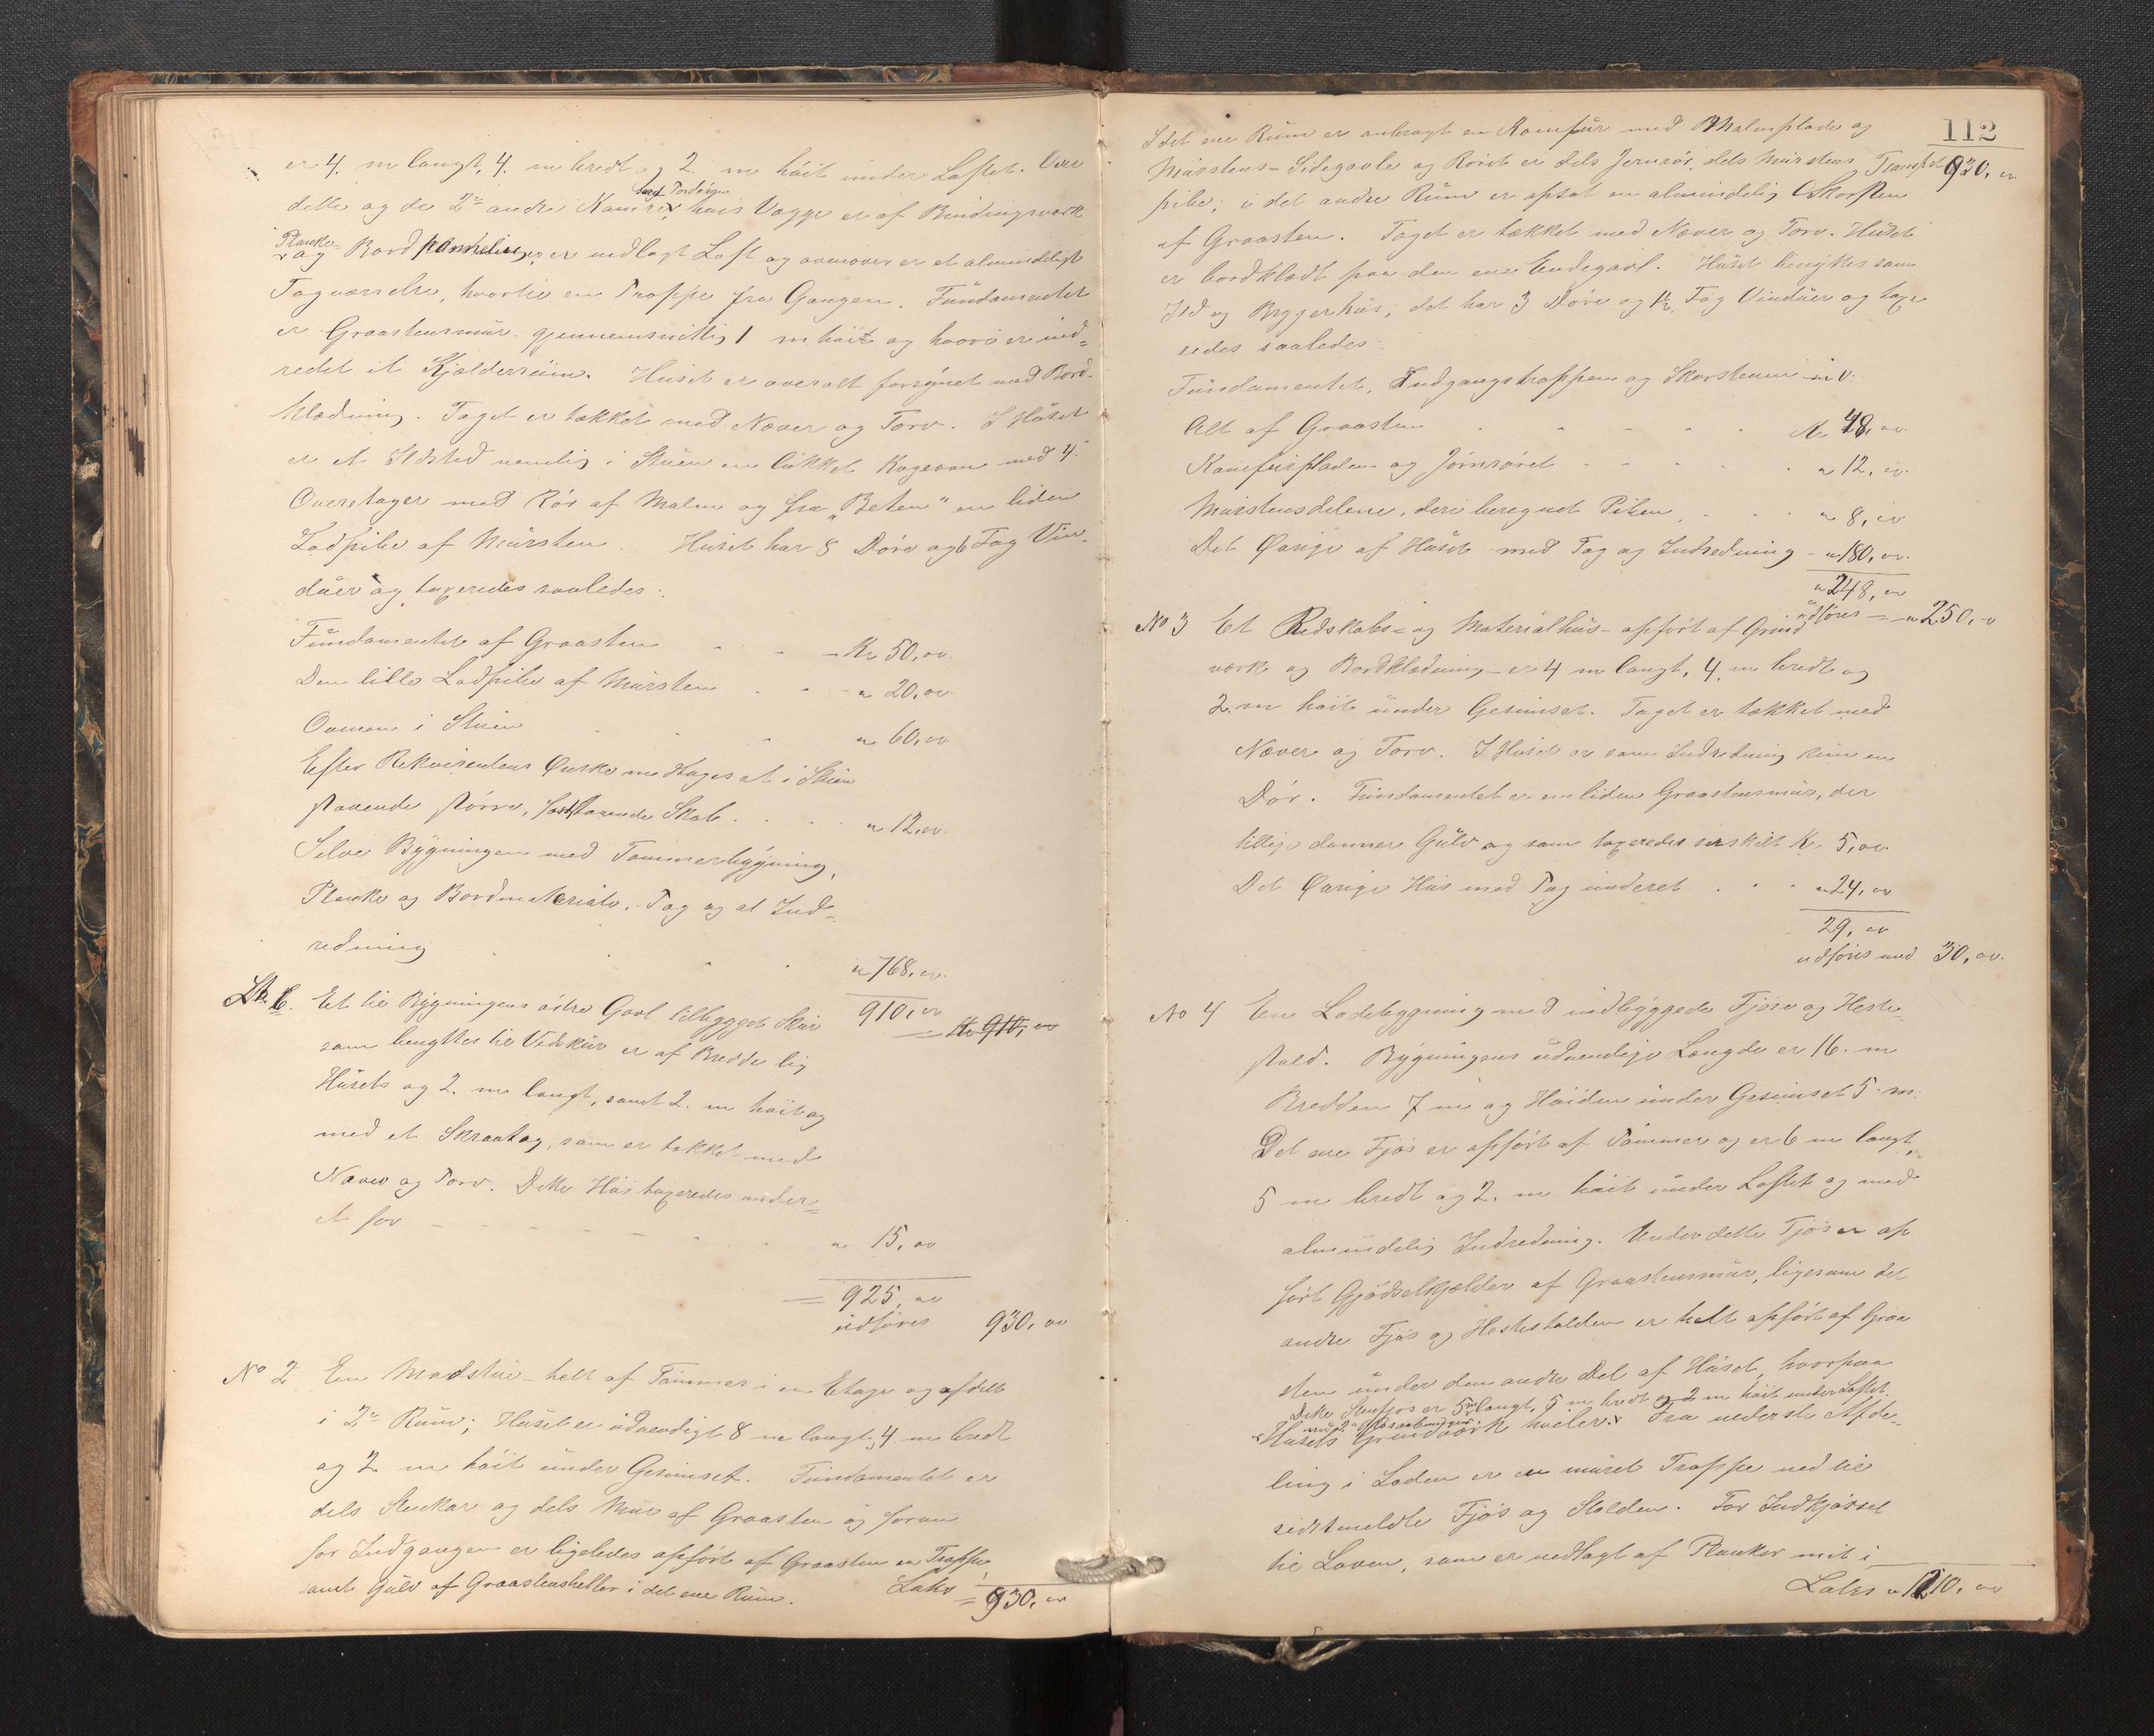 er 4. m langt, 4. m bredt og 2. m höit under Loftet. Over
dette og de 2de andre Kamre,
hvis Vægge er af Bindingsværk
Planke-
og Bord
er nedlagt Loft og ovenover er et almindeligt
Tagværelse, hvortil en Trappe fra Gangen. Fundamentet
er Graastensmur gjennemsnitlig 1 m höit og hvori er ind-
redet et Kjælderrum. Huset er overalt forsynet med Bord-
klædning. Taget er tækket med Næver og Torv. I Huset
er et Ildsted nemlig i Stuen en lukket Kogeovn med 4
Overetager med Rör af Malm og fra „Beten" en liden
Lodpibe af Mursten. Huset har 8 Döre og 6 Fag Vin-
duer og taxeredes saaledes:
Fundamentet af Graasten - - - Kr 50,00.
Den lille Lodpibe af Mursten . . - " 20,00.
Ovnen i Stuen . . . " 60,00
Efter Rekvirentens Önske medtages et i Stuen
staaende större, fastsiddende Skab . . . " 12,00.
Selve Bygningen med Tømmerbygning,
Planke og Bordmateriale, Tag og al Ind-
redning . . . " 768,00.
910,00
= Kr 910,00
Lit. C. Et til Bygningens östre Gavl tilbygget Skur
som benyttes til Vedskur er af Bredde lig
Husets og 2. m langt, samt 2. m höit og
med et Skraatag, som er tækket med
Næver og Torv. Dette Hus taxeredes under
et for - - - - - " 15,00
= 925,00
udföres 930,00
No 2 En Madstue helt af Tömmer i en Etage og afdelt
i 2de Rum; Huset er udvendigt 8 m langt, 4 m bredt
og 2 m höit under Gesimset. Fundamentet er
dels Stenkar og dels Mur af Graasten og foran
for Indgangen er ligeledes opfört af Graasten en Trappe,
samt Gulv af Graastensheller i det ene Rum.
Latus = 930,00
112
I det ene Rum er anbragt en Komfur med Malmplade og
Murstens-Sidegavle og Röret er dels Jernrör, dels Murstens
Transport 930,00
pibe; i det andre Rum er opsat en almindelig Skorsten
af Graasten. Taget er tækket med Næver og Torv. Huset
er bordklædt paa den ene Endegavl. Huset benyttes som
Ild og Bryggerhus, det har 3 Döre og 1½ Fag Vinduer og taxe
redes saaledes:
Fundamentet, Indgangstrappen og Skorstenen
Alt af Graasten . - - - . Kr 48,00.
Komfurpladen og Jernröret - - - . " 12,00.
Murstensdelene, deri beregnet Piben . - . " 8,00
Det Övrige af Huset med Tag og Indredning - " 180,00.
" 248,00
udföres = " 250,00
No 3 Et Redskabs- og Materialhus opfört af Grind
værk og Bordklædning er 4 m langt, 4. m bredt og
2. m höit under Gesimset. Taget er tækket med
Næver og Torv. I Huset er som Indredning kun en
Dör. Fundamentet er en liden Graastensmur, der
tillige danner Gulv og som taxeredes særskilt Kr 5,00.
Det Övrige Hus med Tag underet . . . " 24,00
29,00
udföres med 30,00.
No 4 En Ladebygning med indbyggede Fjöse og Heste-
stald. Bygningens udvendige Længde er 16. m
Bredden 7 m og Höiden under Gesimset 5 m.
Det ene Fjös er opfört af Tömmer og er 6 m langt,
5 m bredt og 2. m höit under Loftet og med
almindelig Indredning. Under dette Fjös er op
fört Gjödselkjælder af Graastensmur, ligesom det
andre Fjös og Hestestalden er helt opfört af Graa
sten under den andre Del af Huset, hvorpaa
Dette Stenfjös er 5 m langt, 5 m bredt og 2 m höit under Loftet.
Husets Grindværk hviler. Fra nederste Afde-
ling i Laden er en muret Trappe ned til
sidstmeldte Fjös og Stalden. For Indkjörsel
til Laven, som er nedlagt af Planker mit i
Latus " 1210,00